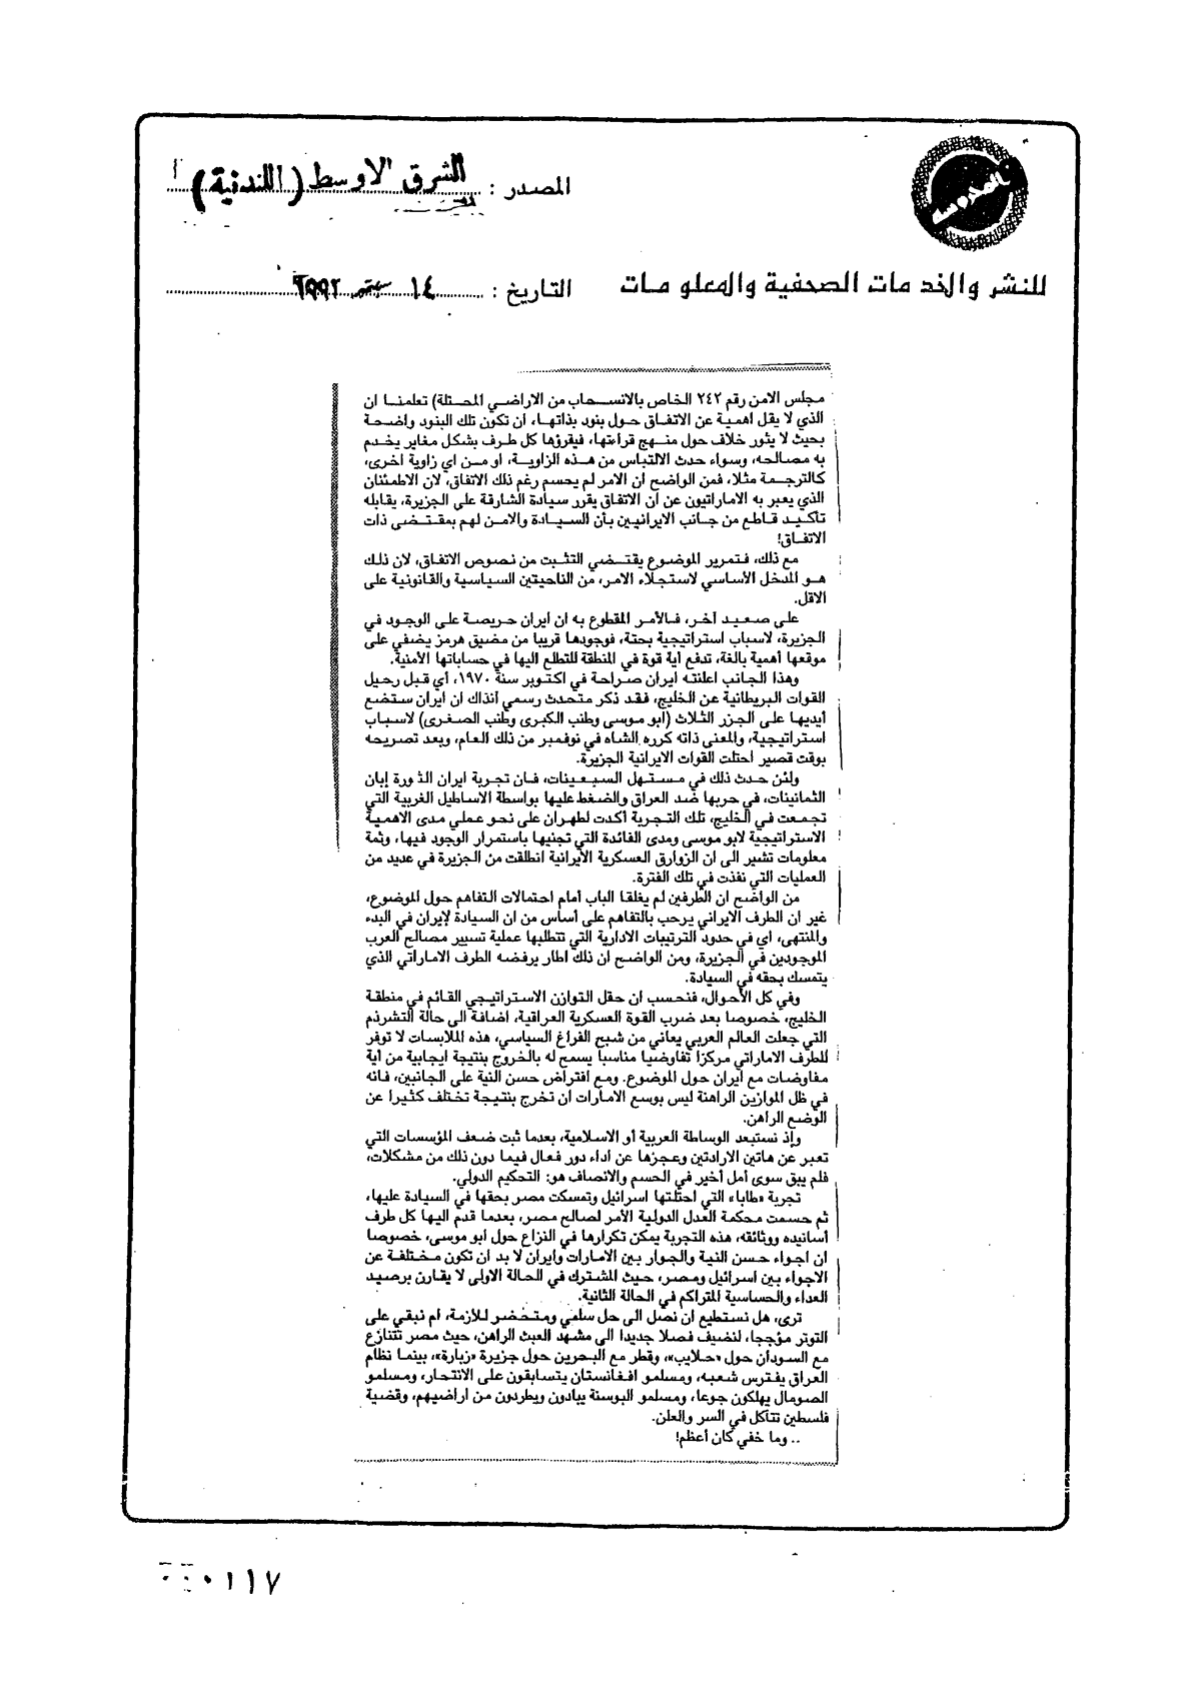 المصدر : الشرق الاوسط (اللندنية)
للنشر والخد مات الصحفية والمعلو مات
التاريخ : ١٤ سبتمبر ١٩٩٢
مجلس الامن رقم ٢٤٢ الخاص بالانسحاب من الاراضي المحتلة) تعلمنا ان
الذي لا يقل اهمية عن الاتفاق حول بنود بذاتها، ان تكون تلك البنود واضحة
بحيث لا يثور خلاف حول منهج قراءتها، فيقرؤها كل طرف بشكل مغاير يخدم
به مصالحه، وسواء حدث الالتباس من هذه الزاوية، او من اي زاوية اخرى،
كالترجمة مثلا، فمن الواضح ان الامر لم يحسم رغم ذلك الاتفاق، لان الاطمئنان
الذي يعبر به الاماراتيون عن ان الاتفاق يقرر سيادة الشارقة على الجزيرة، يقابله
تأكيد قاطع من جانب الايرانيين بأن السيادة والامن لهم بمقتضى ذات
الاتفاق!
مع ذلك، فتمرير الموضوع يقتضي التثبت من نصوص الاتفاق، لان ذلك
هو المدخل الأساسي لاستجلاء الامر، من الناحيتين السياسية والقانونية على
الاقل.
على صعيد آخر، فالأمر المقطوع به ان ايران حريصة على الوجود في
الجزيرة، لاسباب استراتيجية بحتة، فوجودها قريبا من مضيق هرمز يضفي على
موقعها أهمية بالغة، تدفع أية قوة في المنطقة للتطلع اليها في حساباتها الأمنية.
وهذا الجانب اعلنته ايران صراحة في اكتوبر سنة ١٩٧٠، أي قبل رحيل
القوات البريطانية عن الخليج، فقد ذكر متحدث رسمي آنذاك ان ايران ستضع
أيديها على الجزر الثلاث (ابو موسى وطنب الكبرى وطنب الصغرى) لاسباب
استراتيجية، والمعنى ذاته كرره الشاه في نوفمبر من ذلك العام، وبعد تصريحه
بوقت قصير احتلت القوات الايرانية الجزيرة.
ولئن حدث ذلك في مستهل السبعينات، فان تجربة ايران الثورة إبان
الثمانينات، في حربها ضد العراق والضغط عليها بواسطة الاساطيل الغربية التي
تجمعت في الخليج، تلك التجربة أكدت لطهران على نحو عملي مدى الاهمية
الاستراتيجية لابو موسى ومدى الفائدة التي تجنيها باستمرار الوجود فيها، وثمة
معلومات تشير الى ان الزوارق العسكرية الايرانية انطلقت من الجزيرة في عديد من
العمليات التي نفذت في تلك الفترة.
من الواضح ان الطرفين لم يغلقا الباب أمام احتمالات التفاهم حول الموضوع،
غير ان الطرف الايراني يرحب بالتفاهم على أساس من ان السيادة لإيران في البدء
والمنتهى، اي في حدود الترتيبات الادارية التي تتطلبها عملية تسيير مصالح العرب
الموجودين في الجزيرة، ومن الواضح ان ذلك اطار يرفضه الطرف الاماراتي الذي
يتمسك بحقه في السيادة.
وفي كل الأحوال، فنحسب ان حقل التوازن الاستراتيجي القائم في منطقة
الخليج، خصوصا بعد ضرب القوة العسكرية العراقية، اضافة الى حالة التشرذم
التي جعلت العالم العربي يعاني من شبح الفراغ السياسي، هذه الملابسات لا توفر
للطرف الاماراتي مركزاً تفاوضيا مناسبا يسمح له بالخروج بنتيجة ايجابية من اية
مفاوضات مع ايران حول الموضوع. ومع افتراض حسن النية على الجانبين، فانه
في ظل الموازين الراهنة ليس بوسع الامارات ان تخرج بنتيجة تختلف كثيرا عن
الوضع الراهن.
وإذ نستبعد الوساطة العربية أو الاسلامية، بعدما ثبت ضعف المؤسسات التي
تعبر عن هاتين الارادتين وعجزها عن أداء دور فعال فيما دون ذلك من مشكلات،
فلم يبق سوى أمل أخير في الحسم والانصاف هو: التحكيم الدولي.
تجربة «طابا» التي احتلتها اسرائيل وتمسكت مصر بحقها في السيادة عليها،
ثم حسمت محكمة العدل الدولية الأمر لصالح مصر، بعدما قدم اليها كل طرف
أسانيده ووثائقه، هذه التجربة يمكن تكرارها في النزاع حول أبو موسى، خصوصا
ان اجواء حسن النية والجوار بين الامارات وايران لا بد ان تكون مختلفة عن
الاجواء بين اسرائيل ومصر، حيث المشترك في الحالة الاولى لا يقارن برصيد
العداء والحساسية المتراكم في الحالة الثانية.
ترى، هل نستطيع ان نصل الى حل سلمي ومتحضر للازمة، ام نبقي على
التوتر مؤججا، لنضيف فصلا جديدا الى مشهد العبث الراهن، حيث مصر تتنازع
مع السودان حول «حلايب»، وقطر مع البحرين حول جزيرة «زبارة»، بينما نظام
العراق يفترس شعبه، ومسلمو افغانستان يتسابقون على الانتحار، ومسلمو
الصومال يهلكون جوعا، ومسلمو البوسنة يبادون ويطردون من اراضيهم، وقضية
فلسطين تتآكل في السر والعلن.
.. وما خفي كان أعظم!
٠١١٧